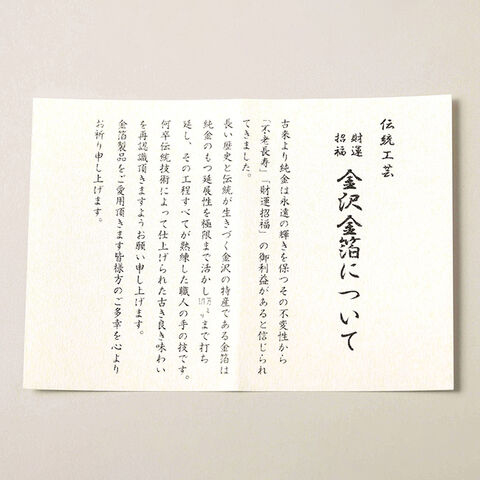 伝統工芸
財運
招福
金沢金箔について
古来より純金は永遠の輝きを保つその不変性から
「不老長寿」「財運招福」の御利益があると信じられ
てきました。
長い歴史と伝統が生きづく金沢の特産である金箔は
純金のもつ延展性を極限まで活かし まで打ち
延し、その工程すべてが熟練した職人の手の技です。
何卒伝統技術によって仕上げられた古き良き味わい
を再認識頂きますようお願い申し上げます。
金箔製品をご愛用頂きます皆様方のご多幸を心より
お祈り申し上げます。